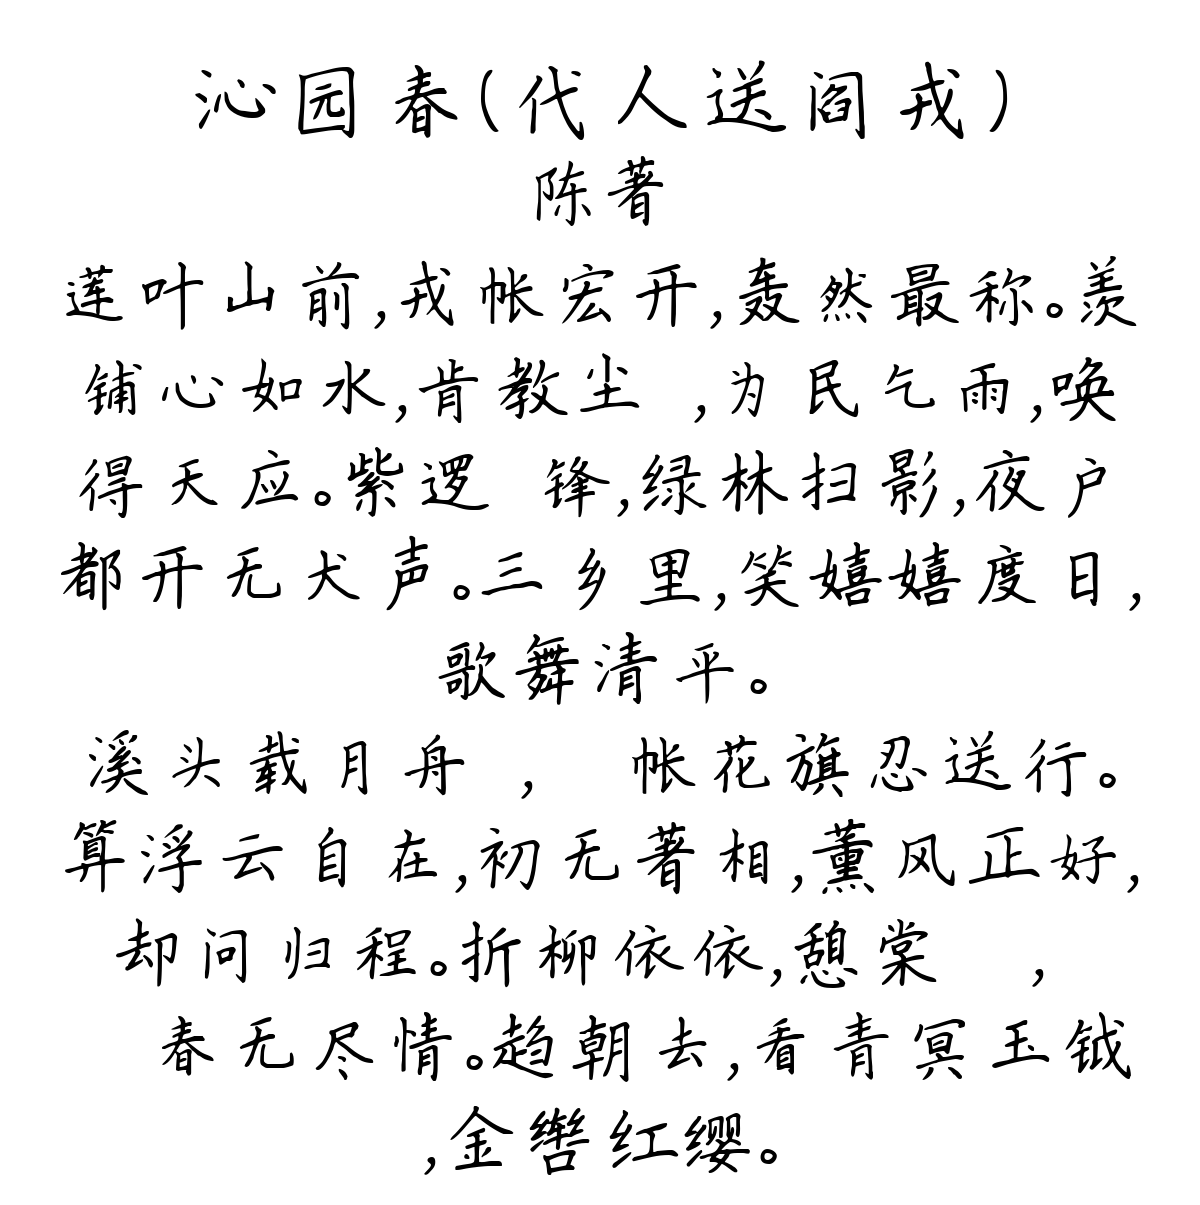 沁园春(代人送阎戎)
陈著
莲叶山前,戎帐宏开,轰然最称。羡
铺心如水,肯教尘 ,为民乞雨,唤
得天应。紫逻 锋,绿林扫影,夜户
都开无犬声。三乡里,笑嬉嬉度日,
歌舞清平。
溪头载月舟 , 帐花旗忍送行。
算浮云自在,初无著相,薰风正好,
却问归程。折柳依依,憩棠 ,
春无尽情。趋朝去,看青冥玉钺
,金辔红缨。